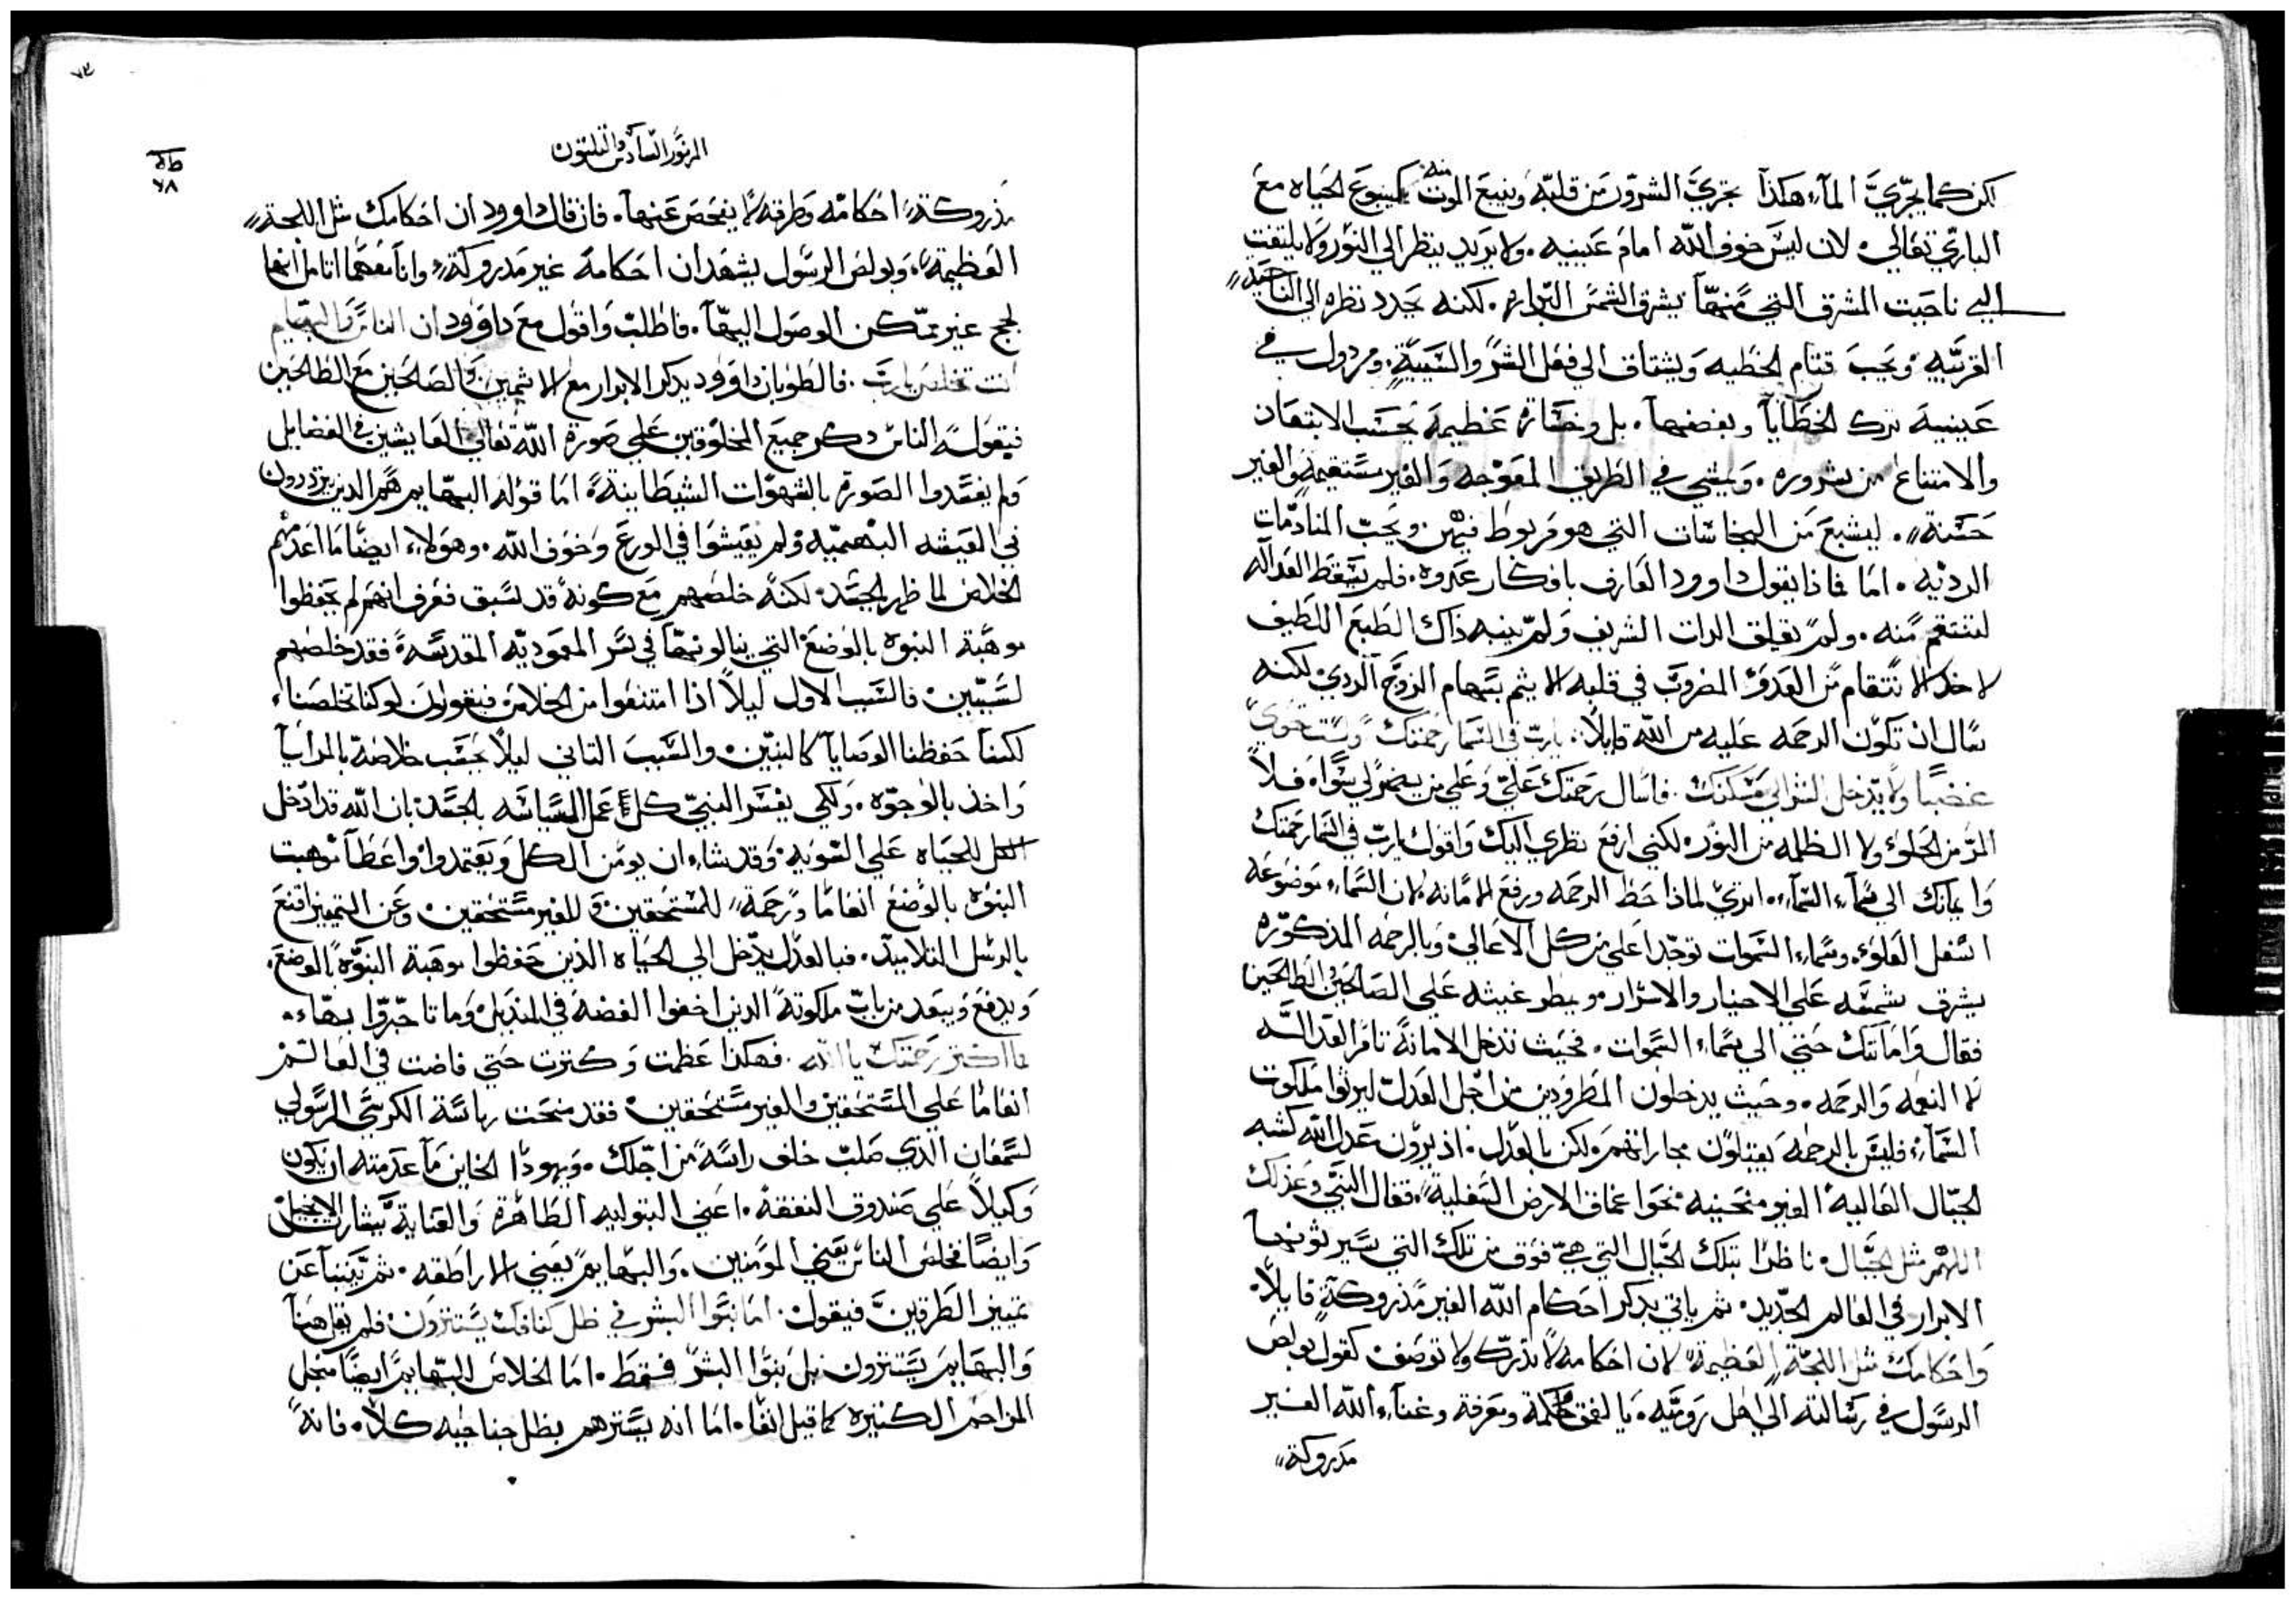 لكن كما يجري الماء هكذا تجري الشرور من قلبه وينبع الموت منه كينبوع الحياه مع
الباري تعالي. لان ليس خوف الله امام عينيه. ولا يريد ينظر الي النور ولا يلتفت
الي ناحيت المشرق التي منها يشرق الشمس البراره. لكنه يحدد نظره الي الناحيه
الغربيه ويحب قتام الخطيه ويشتاق الي فعل الشر والسيية. ومردول في
عينيه ترك الخطايا وبغضها. بل وخساره عظيمه يحسب الابتعاد
والامتناع من شروره. ويمشي في الطريق المعوجه والغير مستقيمه والغير
حسنة. ليشبع من النجاسات التي هو مربوط فيهن ويحب المنادمات
الرديه. اما فاذا يقول داوود العارف بافكار عدوه. فلم يسقط العداله
لتنتقم منه. ولم يقلق الدات الشريف ولم ينبه ذاك الطبع اللطيف
لاخذ الانتقام من العدو المضروب في قلبه الايثم بسهام الزوج الردي لكنه
سال ان تكون الرحمه عليه من الله قايلا. يارب في السما رحمتك ولست تحوي
غضبا ولا يدخل الشر الي مسكنك. فاسال رحمتك علي وعلي من يضمر لي سوا. فلا
المر من الحلو ولا الظلمه من النور. لكني ارفع نظري اليك واقول يارب في السما رحمتك
وايمانك الي سماء السماء. اتري لماذا حط الرحمه ورفع الامانه لان السماء موضوعه
اسفل العلو. وسماء السموات توجد اعلي من كل الاعالي. وبالرحمه المذكوره
يشرق شمسه علي الاخيار والاشرار ويمطر غيثه علي الصالحين والطالحين
فقال وامانتك حتي الي سماء السموات. فحيث تدخل الامانة تامر العداله
لا النعمه والرحمه. وحيث يدخلون المطرودين من اجل العدل ليرثوا ملكوت
السماء فليس بالرحمه يقبلون مجاراتهم ولكن بالعدل. اذ يرون عدل الله كشبه
الجبال العاليه الغير منحنيه نحو اعماق الارض السفلية. فقال النبي وعدلك
اللهم مثل الجبال. ناظرا بتلك الجبال التي هي فوق من تلك التي يسير نحوها
الابرار في العالم الجديد. ثم ياتي يدكر احكام الله الغير مدروكة قايلا.
واحكامك مثل اللجة العظيمة لان احكامه لا تدرك ولا توصف كقول بولص
الرسول في رسالته الي اهل روميه. يا لعمق حكمة ومعرفة وغناء الله الغير
مدروكة
المزمور السادس والثلثون
مدروكة احكامه وطرقه لا يفحص عنها. فان قال داوود ان احكامك مثل اللجة
العظيمة. وبولص الرسول يشهد ان احكامه غير مدروكة. وانا معهما اتامل انها
لجج غير ممكن الوصول اليها. فاطلب واقول مع داوود ان الناس والبهايم
انت تخلص يارب. فالطوبان داوود يدكر الابرار مع الاثمين والصالحين مع الطالحين
فيقوله الناس دكر جميع المخلوقين علي صورة الله تعالي العايشين في الفضايل
ولم يفسدوا الصورة بالشهوات الشيطانية. اما قوله البهايم هم الدين يتزدرون
في العيشه البهيميه ولم يعيشوا في الورع وخوف الله. وهولاء ايضا ما اعدمهم
الخلاص لما ظهر الجسد. لكنه خلصهم مع كونه قد سبق فعرف انهم لم يحفظوا
موهبة النبوه بالوضع التي ينالونها في سر المعموديه المقدسة. فقد خلصهم
لسببين. فالسبب الاول ليلا اذا امتنعوا من الخلاص فيقولون لو كنا تخلصنا
لكنا حفظنا الوصايا كالنبيين. والسبب التاني ليلا يحسب خلاصه بالمرايا
واخذ بالوجوه. ولكي يفسر النبي كل عمل السياسه بالجسد بان الله قد ادخل
الكل للحياه علي السويه. وقد شاء ان يومن الكل ويعتمدوا. واعطا موهبت
البنوه بالوضع انعاما ورحمة للمستحقين وللغير مستحقين. وعن التمييز اقنع
بالرسل التلاميد. فبالعدل يدخل الي الحياه الذين حفظوا موهبة البنوه بالوضع.
ويدفع ويبعد من باب ملكوته الدين اخفوا الفضه في المنديل وما تاجروا بها.
ما اكتر رحمتك يا الله. فهكذا عظمت وكترت حتي فاضت في العالم
انعاما علي المستحقين والغير مستحقين. فقد منحت رياسة الكرسي الرسولي
لسمعان الذي صلب خلف راسه من اجلك. ويهودا الخاين ما عدمته ان يكون
وكيلا علي صندوق النفقه. اعني البتوليه الطاهرة والعناية ببشارة الانجيل
وايضا مخلص الناس يعني المومنين. والبهايم يعني الاراطقه. ثم يتنبا عن
تمييز الطرقين فيقول. اما بنوا البشر في ظل كنافك يستترون. فلم يقل هنا
والبهايم يستترون بل بنوا البشر فقط. اما الخلاص للبهايم ايضا من اجل
المراحم الكتيره كما قيل انفا. اما انه يسترهم بظل جناحيه كلا. فانه